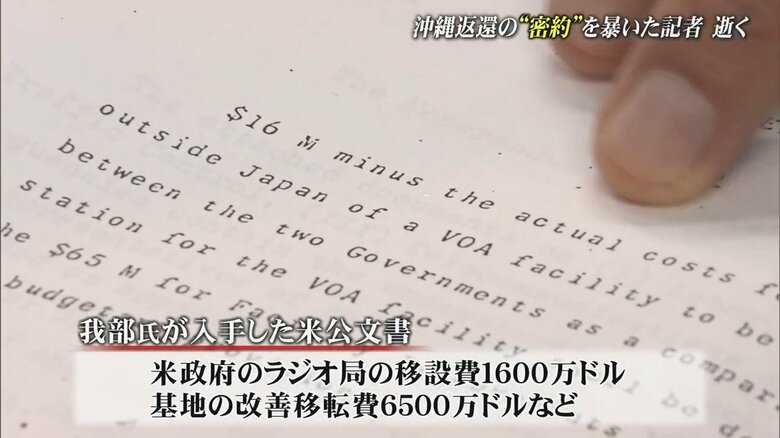 沖縄返還の“密約”を暴いた記者 逝く
$16 M minus the actual costs
outside Japan of a VOA facility to be
between the two Governments as a
station for the VOA facility
$65 M for
budget
我部氏が入手した米公文書
米政府のラジオ局の移設費1600万ドル
基地の改善移転費6500万ドルなど